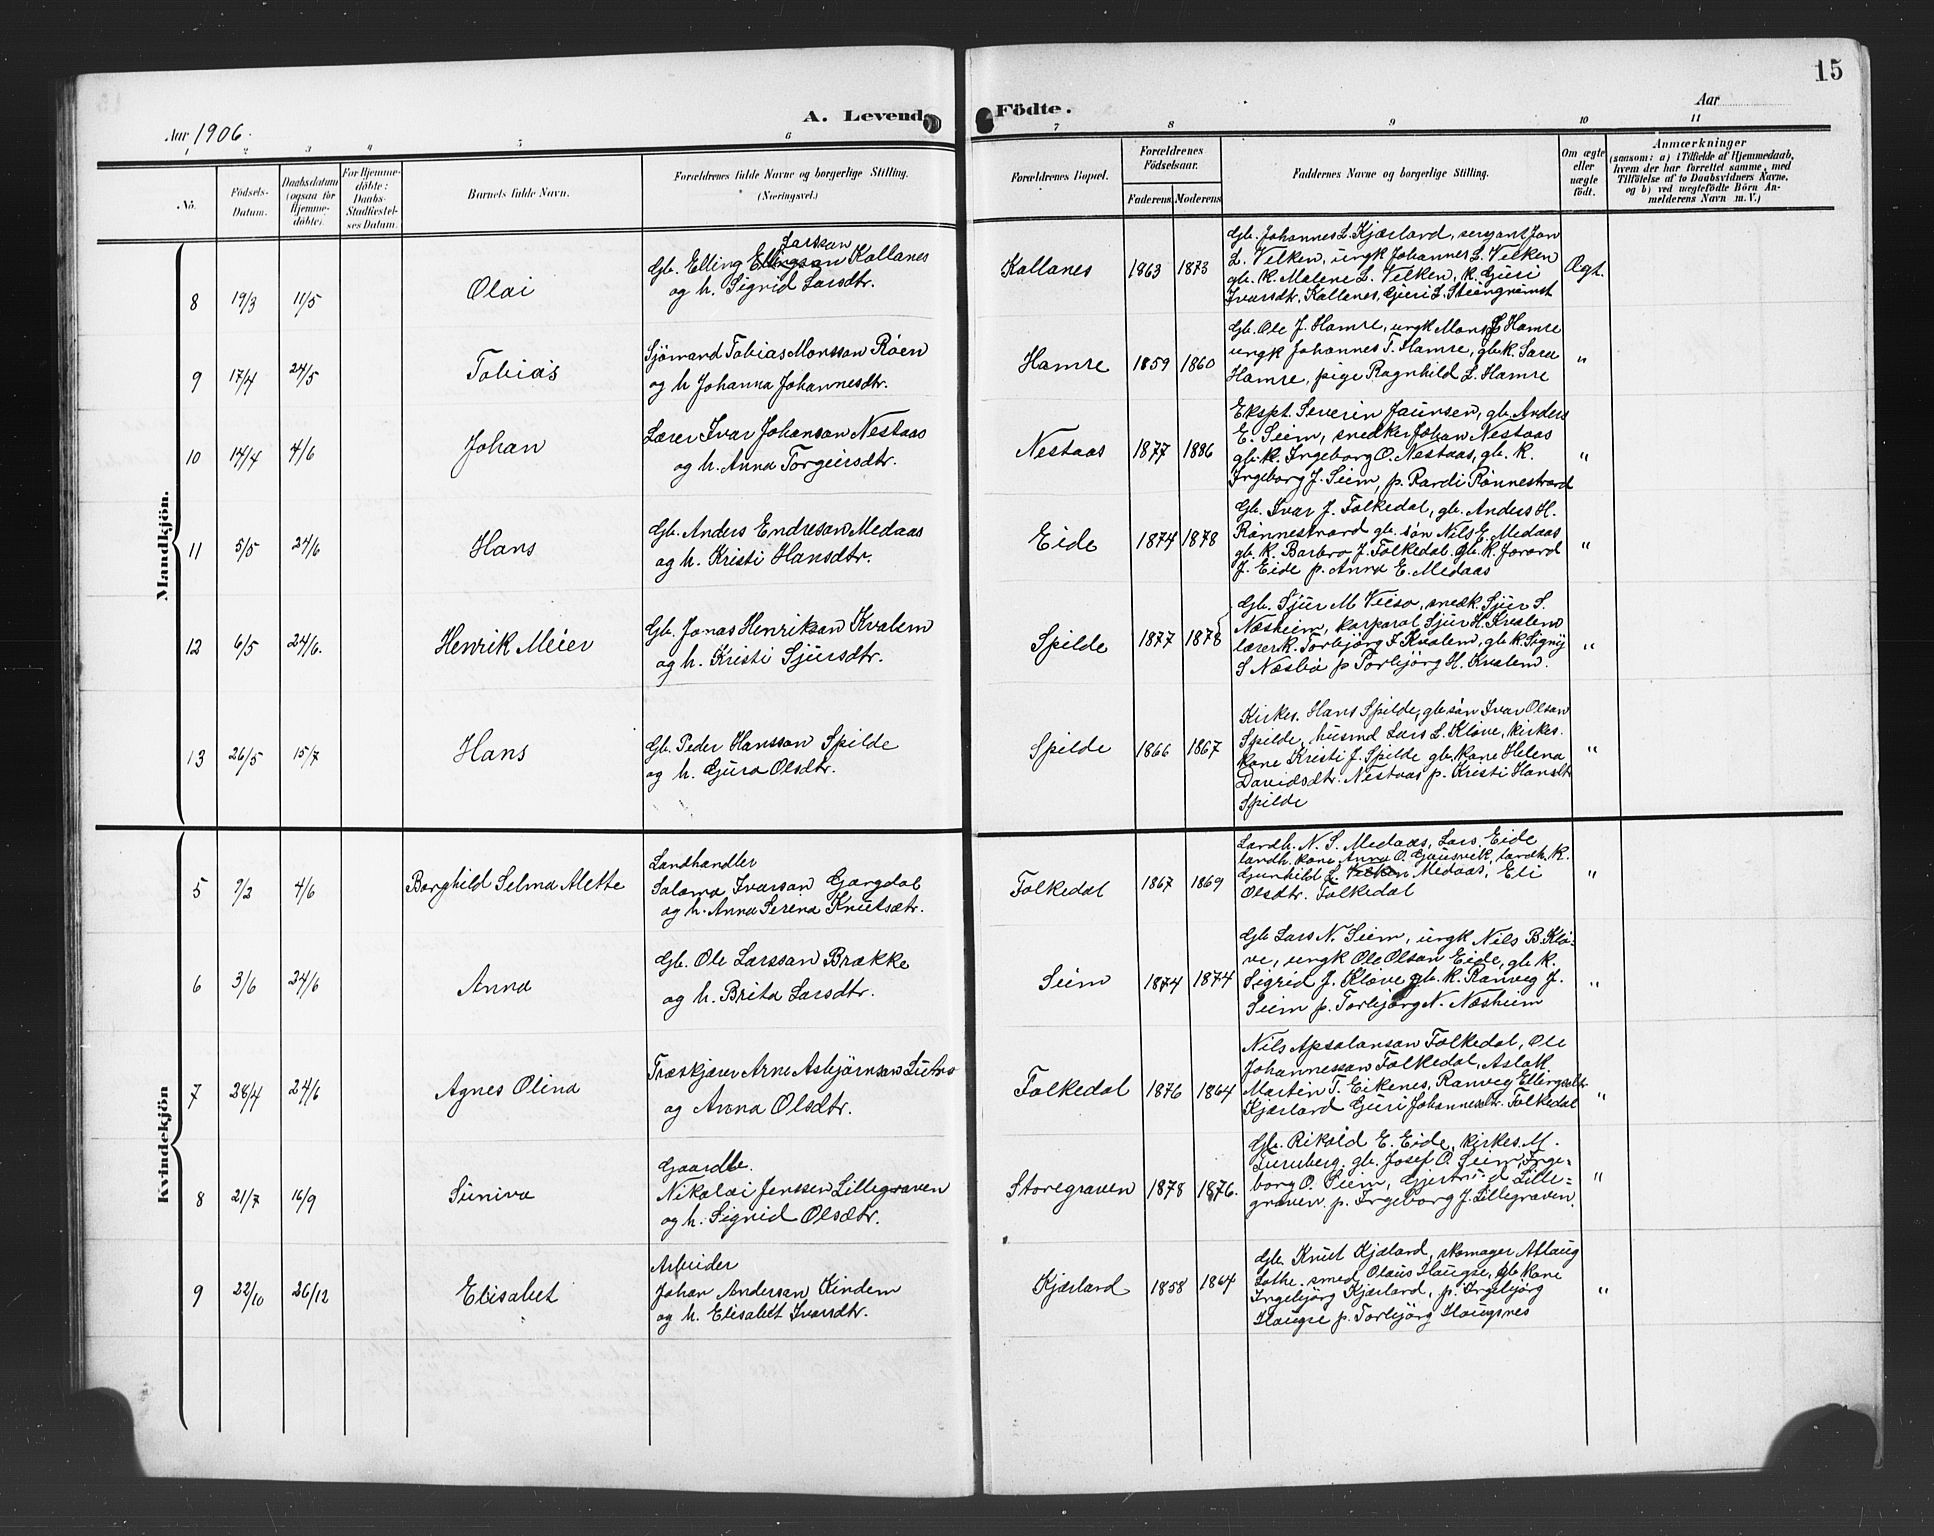 15
A. Levende Födte.
Aar 1906.
Aar
1 2 3 4 5 6 7 8 9 10 11
No.
Födsels-
Datum.
Daabsdatum
(ogsaa for
Hjemme-
döbte).
For Hjemme-
döbte:
Daabs-
Stadfæstel-
ses Datum.
Barnets fulde Navn.
Forældrenes fulde Navne og borgerlige Stilling.
(Næringsvei.)
Forældrenes Bopæl.
Forældrenes
Födselsaar.
Faderens Moderens
Faddernes Navne og borgerlige Stilling.
Om ægte
eller
uægte
födt.
Anmærkninger
(saasom: a) i Tilfælde af Hjemmedaab,
hvem der har forrettet samme, med
Tilföielse af to Daabsvidners Navne,
og b) ved uægtefödte Börn An-
melderens Navn m. V.)
Mandkjön.
8 19/3 11/5 Olai
Larssan
Gb. Elling Ellingsan Kallanes
og h. Sigrid Larsdtr.
Kallanes 1863 1873
Gb. Johannes L. Kjærland, sergant Jon
L. Velken, ungk Johannes L. Velken
gb. k. Malene L. Velken, k. Guri
Ivarsdtr. Kallenes, Guri L.
Ægt.
9 17/4 24/5 Tobias
Sjömand Tobias Monsson Röen
og h Johanna Johannesdtr.
Hamre 1859 1860
Gb. Ole J. Hamre, ungk Mons J. Hamre
ungk Johannes T. Hamre, gb. k. Sara
Hamre, pige Ragnhild L. Hamre
"
10 14/4 4/6 Johan
Lærer Ivar Johansan Nestaas
og h. Anna Torgeirsdtr.
Nestaas 1877 1886
Ekspt. Severin Jaunsen, gb. Anders
E. Seim, snedker Johan Nestaas
gb. k. Ingeborg O. Nestaas, gb. k.
Ingeborg J. Seim, p. Rønnestrand
"
11 5/5 24/6 Hans
Gb. Anders Endresan Medaas
og h. Kristi Hansdtr.
Eide 1874 1878
Gb. Ivar J. Folkedal, gb. Anders H.
Rønnestrand gb. søn Nils E. Medaas
gb. k. Barbro J. Folkedal. gb. k. Jorand
J. Eide p. Anna E. Medaas
"
12 6/5 24/6. Henrik Meier
Gb. Jonas Henriksan Kvalem
og h. Kristi Sjursdtr.
Spilde 1877 1878
Gb. Sjur M. snedk. Sjur S.
Næsheim, korporal Sjur H. Kvalem
lærerk. Torbjörg J. Kvalem, gb. k. Signy
S p Torbjörg H. Kvalem.
"
13 26/5 15/7 Hans
Gb. Peder Hanssan Spilde
og h. Guro Olsdtr.
Spilde 1866 1867
Kirkes. Hans Spilde, gb. søn Ivar Olsan
Spilde, husmd Lars L. Kløve, kirkes.
kone Kristi J. Spilde gb. kone Helena
Davidsdtr. Nestaas p. Kristi Hansdtr
Spilde
"
Kvindekjön
5 4/6 Borghild Selma Alette
Landhandler
Salama Ivarsan Gjerdal
og h. Anna Serena Knutsdtr.
Folkedal 1867 1869
Landh. N. S. Medaas, Lars Eide
landh. kone Anna O. landh. k.
Gunhild L. Medaas, Eli
Olsdtr. Folkedal
"
6 3/6 24/6 Anna
Gb. Ole Larssan Brække
og h. Brita Larsdtr.
Seim 1874 1874
Gb Lars N. Seim, ungk Nils B. Klø-
ve, ungk Ole Olsan Eide, gb. k.
Sigrid J. Kløve gb. k. Ranveig J.
Seim p. Torbjörg N. Næsheim
"
7 28/4 24/6 Agnes Olina
Træskjærer Arne Asbjørnsen
og Anna Olsdtr.
Folkedal 1876 1864
Nils Folkedal, Ole
Johannessan Folkedal, Aslak
Martin T. Eikenes, Ranveig Ellingsdtr
Kjærland Guri Johannesdtr. Folkedal
"
8 21/7 16/9 Suniva
Gaardbr.
Nikolai Jenssen Lillegraven
og h. Sigrid Olsdtr.
Storegraven 1878 1876.
Gb. Rikold E. Eide, kirkes. M.
Furuberg. gb. Josef O. Seim, Inge-
borg O. Seim, Gjertrud Lille-
graven p. Ingeborg J. Lillegraven.
"
9 22/10 26/12 Elisabet
Arbeider
Johan Andersan Kindem
og h. Elisabet Ivarsdtr.
Kjærland 1858 1864
Gb. Knut Kjærland, skomager
Lothe. smed Olaus Haugse, gb kone
Ingebjörg Kjærland, p. Ingebjörg
Haugse p. Torbjörg Haugsnes
"